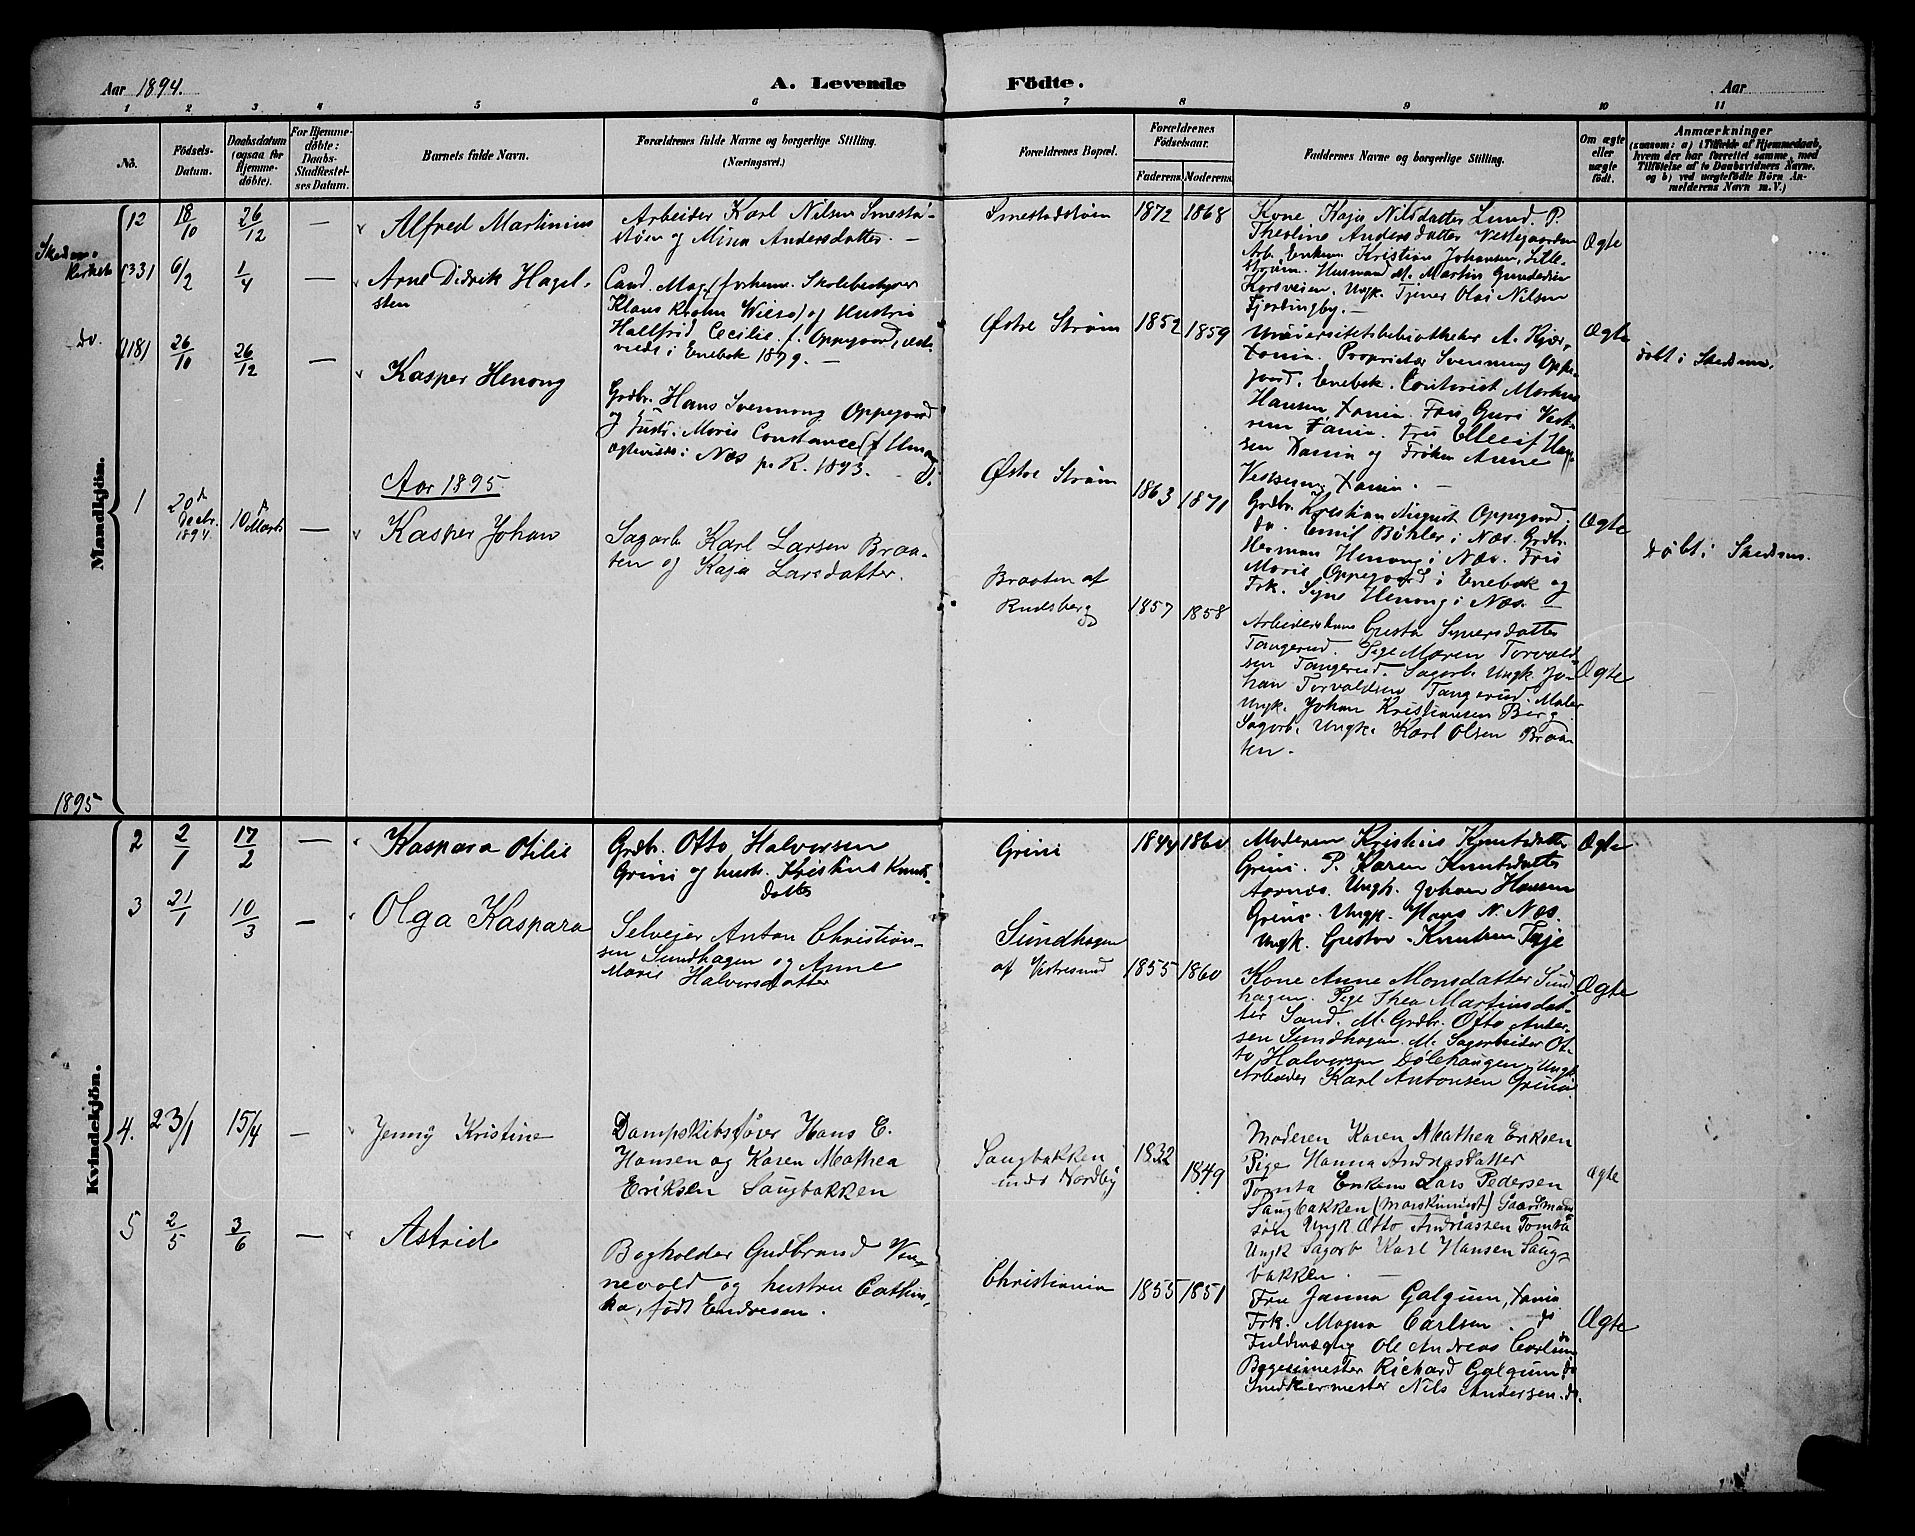 Aar 1894.
A. Levende Födte.
Aar
1 2 3 4 5 6 7 8 9 10 11
No.
Födsels-
Datum.
Daabsdatum
(ogsaa for
Hjemme-
döbte).
For Hjemme-
döbte:
Daabs-
Stadfæstel-
ses Datum.
Barnets fulde Navn.
Forældrenes fulde Navne og borgerlige Stilling.
(Næringsvei.)
Forældrenes Bopæl.
Forældrenes
Födselsaar.
Faderens. Moderens.
Faddernes Navne og borgerlige Stilling.
Om ægte
eller
uægte
födt.
Anmærkninger
(saasom: a) i Tilfælde af Hjemmedaab,
hvem der har forrettet samme, med
Tilföielse af to Daabsvidners Navne,
og b) ved uægtefödte Börn An-
melderens Navn m. V.)
Mandkjön.
12 18/10 26/12 —
Alfred Martinius
Arbeider Karl Nilsen Smestad-
støen og Mina Andersdatter. —
Smestadstøen
1872 1868
Kone Kaja Nilsdatter Lund. P.
Theoline Andersdatter Vestegaarden
Arb. Enkem. Kristian Johansen, Lille-
strøm. Husmand M. Martin Gundersen
Korsveien. Ungk. Tjener Olai Nilsen
Fjerdingby. —
Ægte
(33) 6/2 1/4
Arne Didrik Hagel-
sten
Cand. Mag. (forhenv. Skolebestyrer
Hallfrid Cecilie f. Oppegaard,
i Enebak 1879. —
Østre Strøm
1852 1859
Universitetsbibliothekar A. Kjær,
Xania. Proprietær Svennung Oppe-
gaard, Enebak. Contorist Markus
Hansen, Xania. Fru Guri Vest-
rem Xania. Frk. Elleif Han-
sen Xania og Frøken Anne
Vestrem, Xania. —
Ægte
døbt i Skedsmo.
do.
(18) 26/10 26/12 —
Kasper Henong
Grdbr. Hans Svennung Oppegaard
og Hustr. Marie Constance (f. Henong
ægteviede i Næs p. R. 1893. —
Østre Strøm
1863 1871
Grdbr. Kristian August Oppegaard,
do. Emil Bøhler i Næs. Grdbr.
Herman Henong i Næs. Fru
Marie Oppegaard i Enebak og
Frk. Signe Henong i Næs. —
Ægte
døbt i Skedsmo.
Aar 1895
1 20d Decbr. 1894. 10d Marts —
Kasper Johan
Sagarb. Karl Larsen Braa-
ten og Kaja Larsdatter.
Braaten af
Rudsberg
1857 1858
Arbeiderskone Gusta Syversdatter
Tangerud. Pige Maren Torvald-
sen Tangerud. Sagarb. Ungk. Jo-
han Torvaldsen Tangerud. Maler
Ungk. Johan Kristiansen Berg.
Sagarb. Ungk. Karl Olsen Braa-
ten.
Ægte
1895
Kvindekjön.
2 2/1 17/2 —
Kaspara Otilie
Grdbr. Otto Halvorsen
Grini og hustr. Kristine Knuds-
datter
Grini
1844 1860
Moderen Kristine Knutsdatter
Grini. P. Karen Knutsdatter
Aarnæs. Ungk. Johan Hansen
Grini. Ungk. Hans N. Næs.
Ungk. Gustav Knutsen Teje
Ægte
3 21/1 10/3 —
Olga Kaspara
Selveier Anton Christian-
sen Sundhagen og Anne
Marie Halvorsdatter
Sundhagen
af Vestresund
1855 1860
Kone Anne Monsdatter Sund-
hagen. Pige Thea Martinsdat-
ter Sand. M. Grdbr. Otto Ander-
sen Sundhagen. M. Sagarbeider Ot-
to Halvorsen Dølehaugen, Ungk.
Arbeider Karl Antonsen Grini.
Ægte
4. 23/1 15/4 —
Jenny Kristine
Dampskibsfører Hans C.
Hansen og Karen Mathea
Eriksen Saugbakken
Saugbakken
under Nordby
1832 1849
Moderen Karen Mathea Eriksen
Pige Hanna Andreasdatter
Tomta Enkem Lars Pedersen
Saugbakken (Maskinmest) Gaardmand-
søn Ungk Otto Andreassen Tomta
Ungk Sagarb Karl Hansen Saug-
bakken. —
Ægte
5 2/5 3/6 —
Astrid
Bogholder Gudbrand Ven-
nevold og hustru Cathin-
ka, født Endresen.
Christiania
1855 1851
Fru Janna Galgum, Xania
Frk. Magna Carlsen. do
Fuldmægtig Ole Andreas Carlsen do
Bygesimester Richard Galgum do
Snedkermester Nils Andersen. do.
Ægte